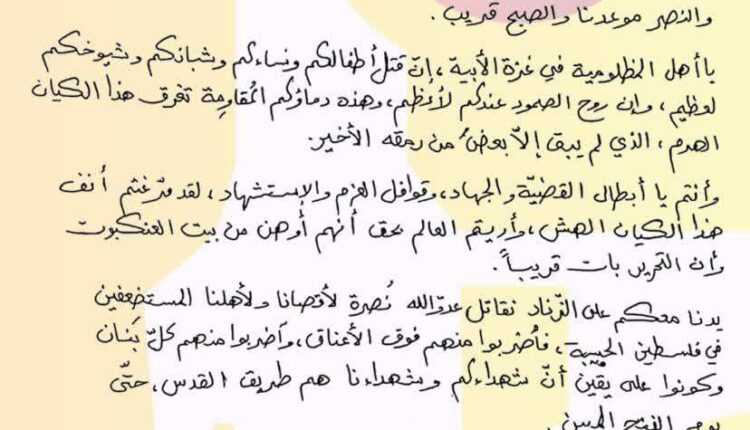 والنصر موعدنا والصبح قريب.
يا أهل المظلومية في غزة الأبية، إنّ قتل أطفالكم ونساءكم وشبانكم وشيوخكم
لعظيم، وإن روح الصمود عندكم لأعظم، وهذه دماؤكم المُقاوِمة تغرق هذا الكيان
الهرم، الذي لم يبق إلاّ بعضٌ من رمقه الأخير.
وأنتم يا أبطال القضيّة والجهاد، وقوافل العزم والاستشهاد، لقد مرّغتم أنف
هذا الكيان الهش، وأريتم العالم بحق أنهم أوهن من بيت العنكبوت
وأن التحرير بات قريباً.
يدنا معكم على الزّناد نقاتل عدوّ الله نُصرة لأقصانا ولأهلنا المستضعفين
في فلسطين الحبيبة، فاضربوا منهم فوق الأعناق، واضربوا منهم كلّ بَنان
وكونوا على يقين أنّ شهداءكم وشهداءنا هم طريق القدس، حتّى
يوم الفتح المبين.